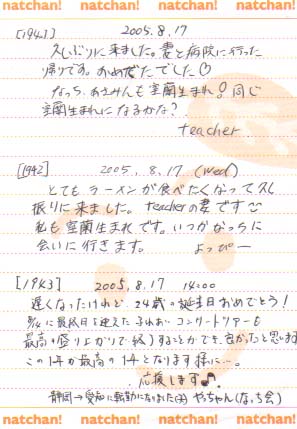 natchan! natchan! natchan! natchan!
[1941] 2005.8.17
久しぶりに来ました。妻と病院に行った
帰りです。おめでたでした♡
なっち、あさみんも室蘭生まれ!同じ
室蘭生まれになるかな?
teacher
[1942] 2005. 8. 17 (wed)
とても ラーメンが食べたくなって久し
振りに来ました。teacherの妻です
私も室蘭生まれです。いつかなっちに
会いに行きます。 よっぴー
[1943] 2005. 8. 17 14:00
遅くなったけれど 24歳の誕生日おめでとう!
8/14に最終日を迎えた ふれあい コンサートツアーも
最高に盛り上がりで終りすることができ、良かったと思います
この1年が最高の1年となります様に…。
応援します♪
静岡→愛知に転勤になりました やっちゃん(なっち会)
natchan! natchan! natchan! natchan!